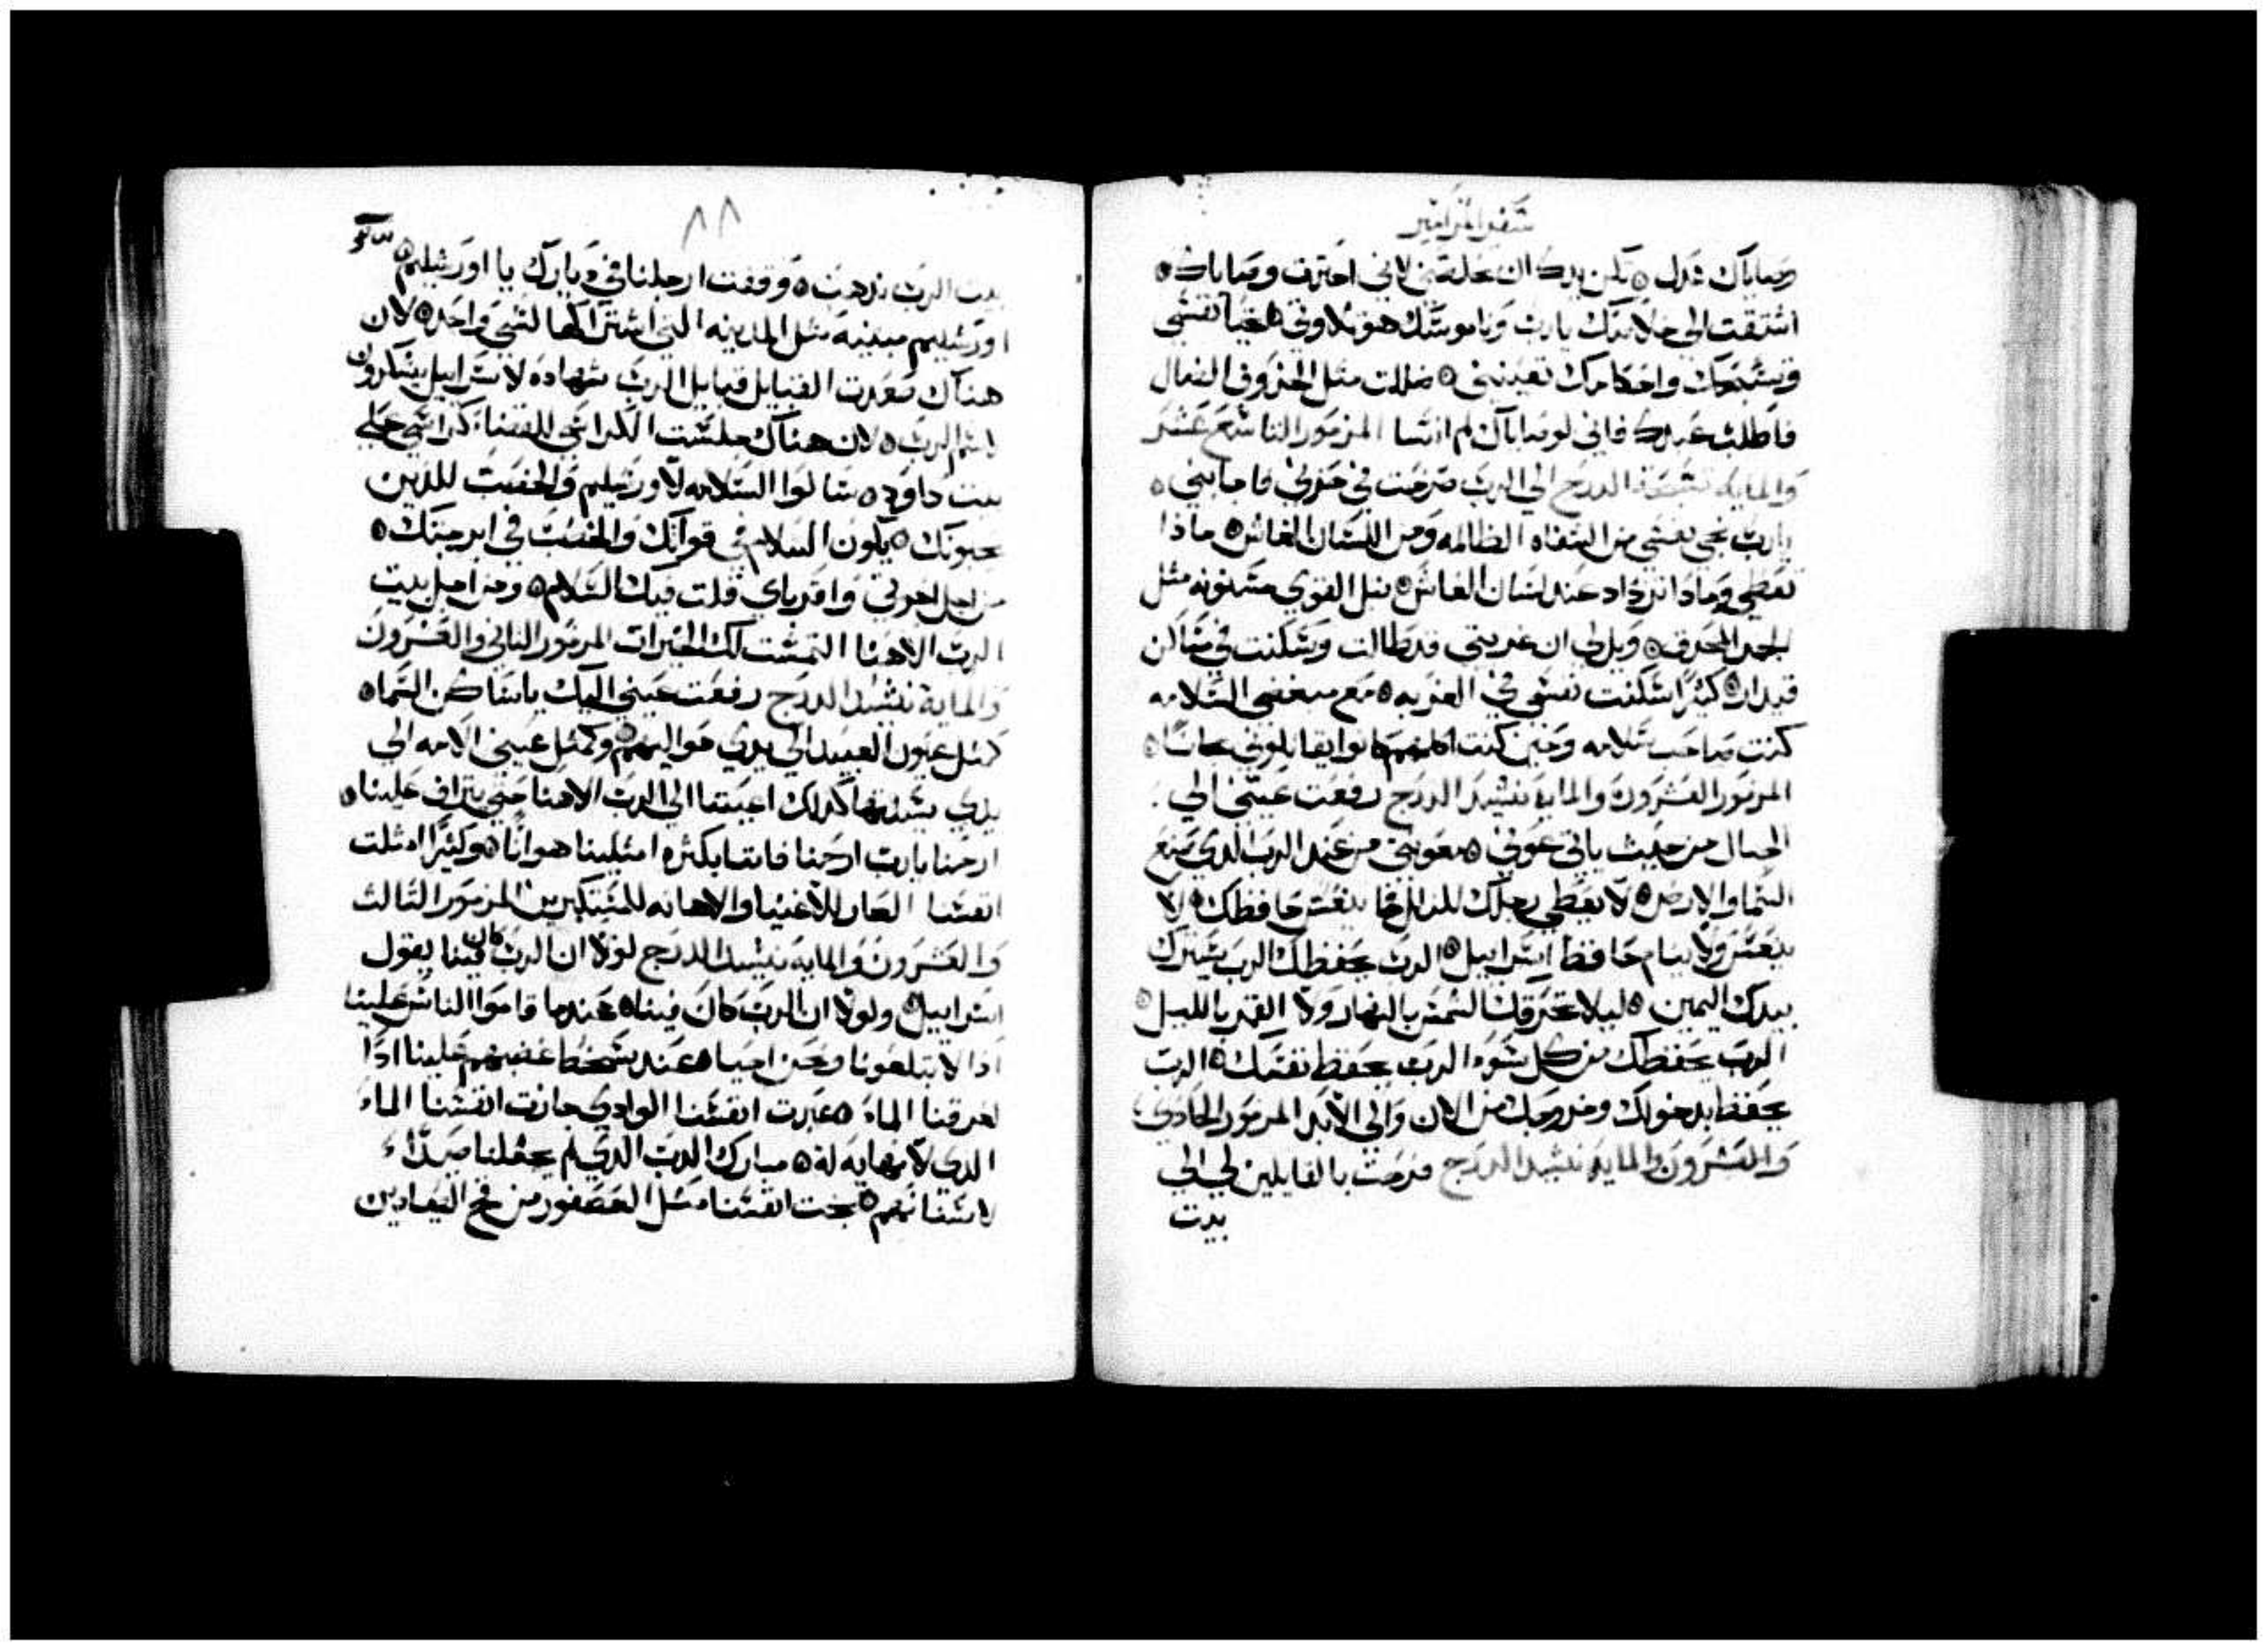 سفر المزامير
وصاياك عدل ۞ تكن يدك ان تخلصني لاني اخترت وصاياك ۞
اشتقت الى خلاصك يارب وناموسك هو تلاوتي ۞ تحيا نفسي
وتسبحك واحكامك تعينني ۞ ضللت مثل الخروف الضال
فاطلب عبدك فاني لوصاياك لم انسا المزمور التاسع عشر
والمايه تسبحة الدرج الي الرب صرخت في حزني فاجابني ۞
يارب نجي نفسي من الشفاه الظالمه ومن اللسان الغاش ۞ ماذا
تعطي وماذا تزداد عند لسان الغاش ۞ نبل القوي مسنونه مثل
الجمر المحرق ۞ ويل لي ان غربتي قد طالت وسكنت في مساكن
قيدار ۞ كثيرا سكنت نفسي في الغربه ۞ مع مبغضي السلامه
كنت صاحب سلامه وحين كنت اكلمهم كانوا يقاتلوني مجانا ۞
المزمور العشرون والمايه نشيد الدرج رفعت عيني الي
الجبال من حيث ياتي عوني ۞ معونتي من عند الرب الذي صنع
السما والارض ۞ لا يعطي رجلك للزلل فما ينعس حافظك ۞ لا
ينعس ولا ينام حافظ اسراييل ۞ الرب يحفظك الرب يسترك
بيدك اليمين ۞ ليلا تحرقك الشمس بالنهار ولا القمر بالليل ۞
الرب يحفظك من كل سوء الرب يحفظ نفسك ۞ الرب
يحفظ دخولك وخروجك من الان والي الابد المزمور الحادي
والعشرون والمايه نشيد الدرج فرحت بالقايلين لي الي
بيت
٨٨
بيت الرب نذهب ۞ وقفت ارجلنا في ديارك يا اورشليم ۞
اورشليم مبنيه مثل المدينه التي اشتراكها لشي واحد ۞ لان
هناك صعدت القبايل قبايل الرب شهاده لاسراييل يشكرون
لاسم الرب ۞ لان هناك جلست الكراسي للقضا كراسي علي
بيت داوود ۞ سالوا السلامه لاورشليم والخصب للذين
يحبونك ۞ يكون السلام في قواتك والخصب في ابرجتك ۞
من اجل اخوتي واقرباي قلت فيك السلام ۞ ومن اجل بيت
الرب الاهنا التمست لك الخيرات المزمور الثاني والعشرون
والماية نشيد الدرج رفعت عيني اليك ياساكن السماء
كمثل عيون العبيد الي يدي مواليهم ۞ وكمثل عيني الامه الي
يدي سيدتها كذلك اعيننا الي الرب الاهنا حتي يتراف علينا ۞
ارحمنا يارب ارحمنا فاننا بكثره امتلينا هوانا ۞ وكثيرا امتلت
انفسنا العار للاغنيا والاهانه للمتكبرين المزمور الثالث
والعشرون والمايه نشيد الدرج لولا ان الرب كان فينا يقول
اسراييل ولولا ان الرب كان فينا ۞ عندما قاموا الناس علينا
اذا لابتلعونا ونحن احيا ۞ عند سخط غضبهم علينا اذا
لغرقنا الماء ۞ عبرت انفسنا الوادي جازت انفسنا الماء
الذي لا نهايه له ۞ مبارك الرب الذي لم يجعلنا صيداء
لاسنانهم ۞ نجت انفسنا مثل العصفور من فخ الصيادين